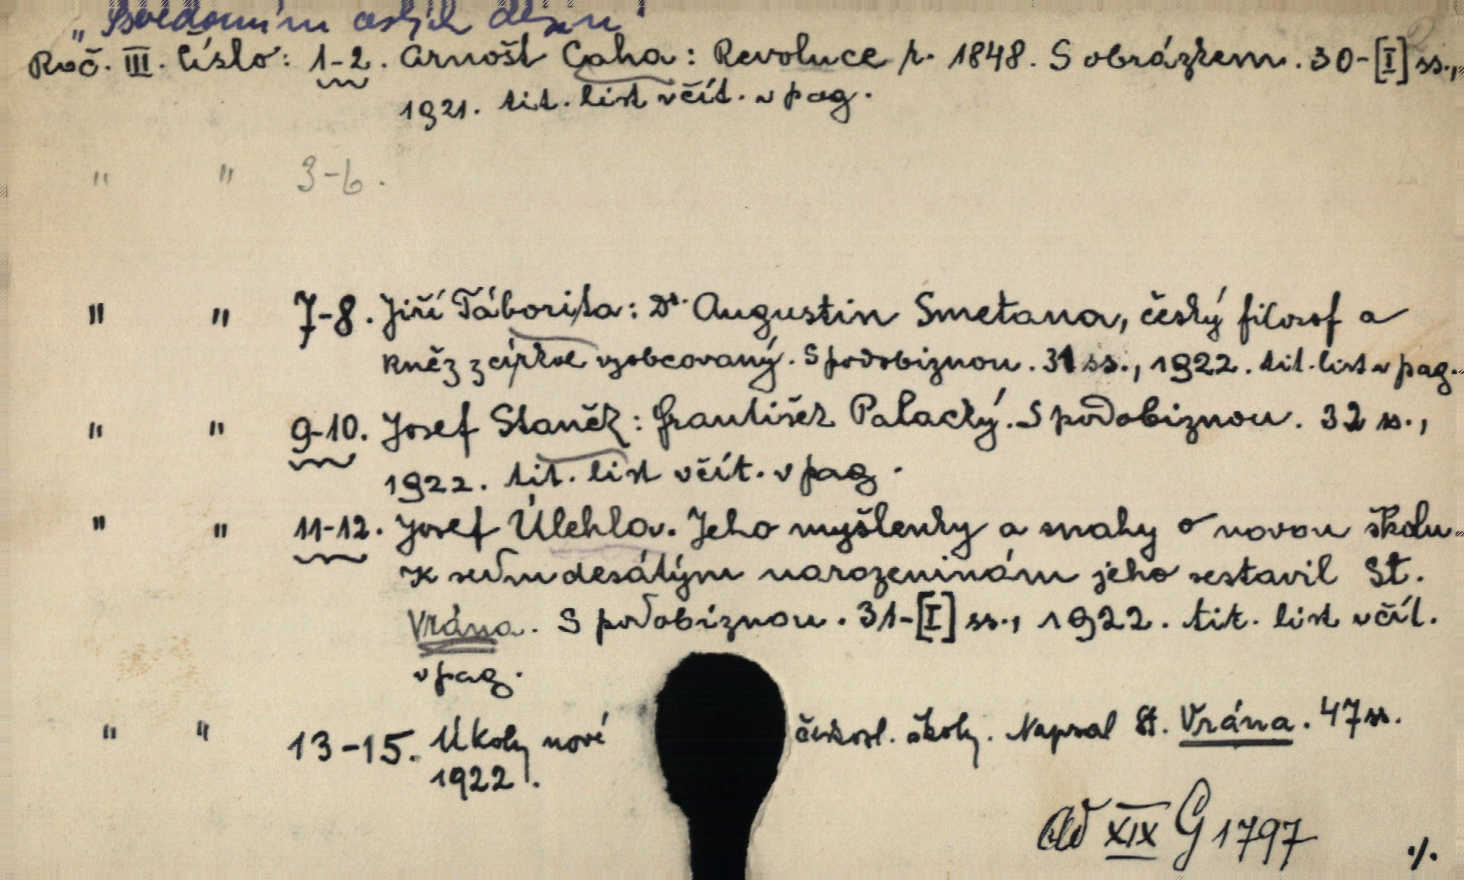 Roč. III. Číslo: 1-2. Arnošt Caha: Revoluce r. 1848. S obrázkem. 30-[I] ss.,
1921. tit. list včít. v pag.
" " 3-6.
" " 7-8. Jiří Táborita: Dr. Augustin Smetana, český filosof a
kněz z církve vyobcovaný. S podobiznou. 31 ss., 1922. tit. list v pag.
" " 9-10. Josef Staněk: František Palacký. S podobiznou. 32 ss.,
1922. tit. list včít. v pag.
" " 11-12. Josef Úlehla. Jeho myšlenky a snahy o novou školu.
K sedmdesátým narozeninám jeho sestavil St.
Vrána. S podobiznou. 31-[I] ss., 1922. tit. list včít.
v pag.
" " 13-15. Úkoly nové českosl. školy. Napsal St. Vrána. 47 ss.
1922.
Ad XIX G 1797
./.